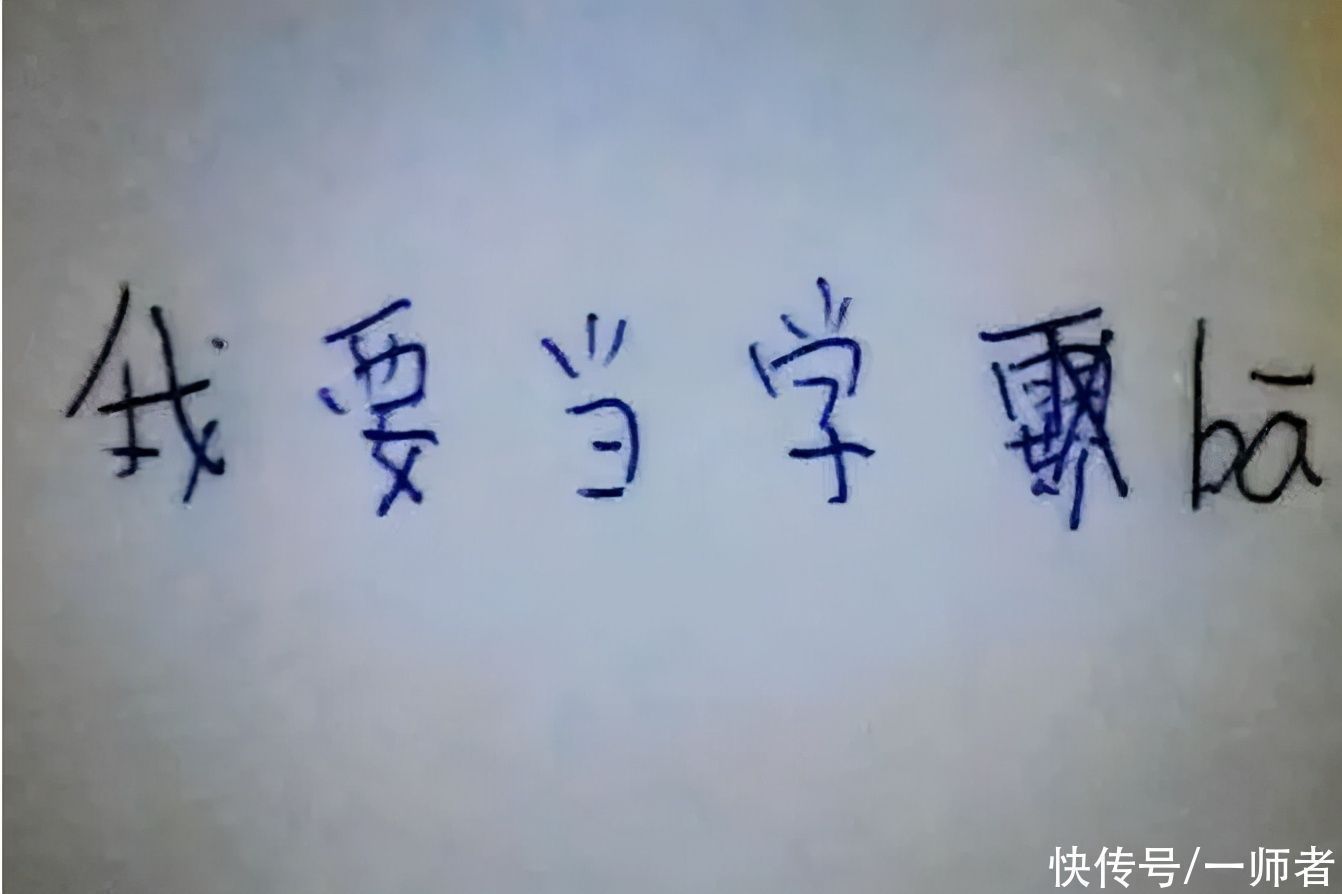 我要当学bā
快传号/一师者